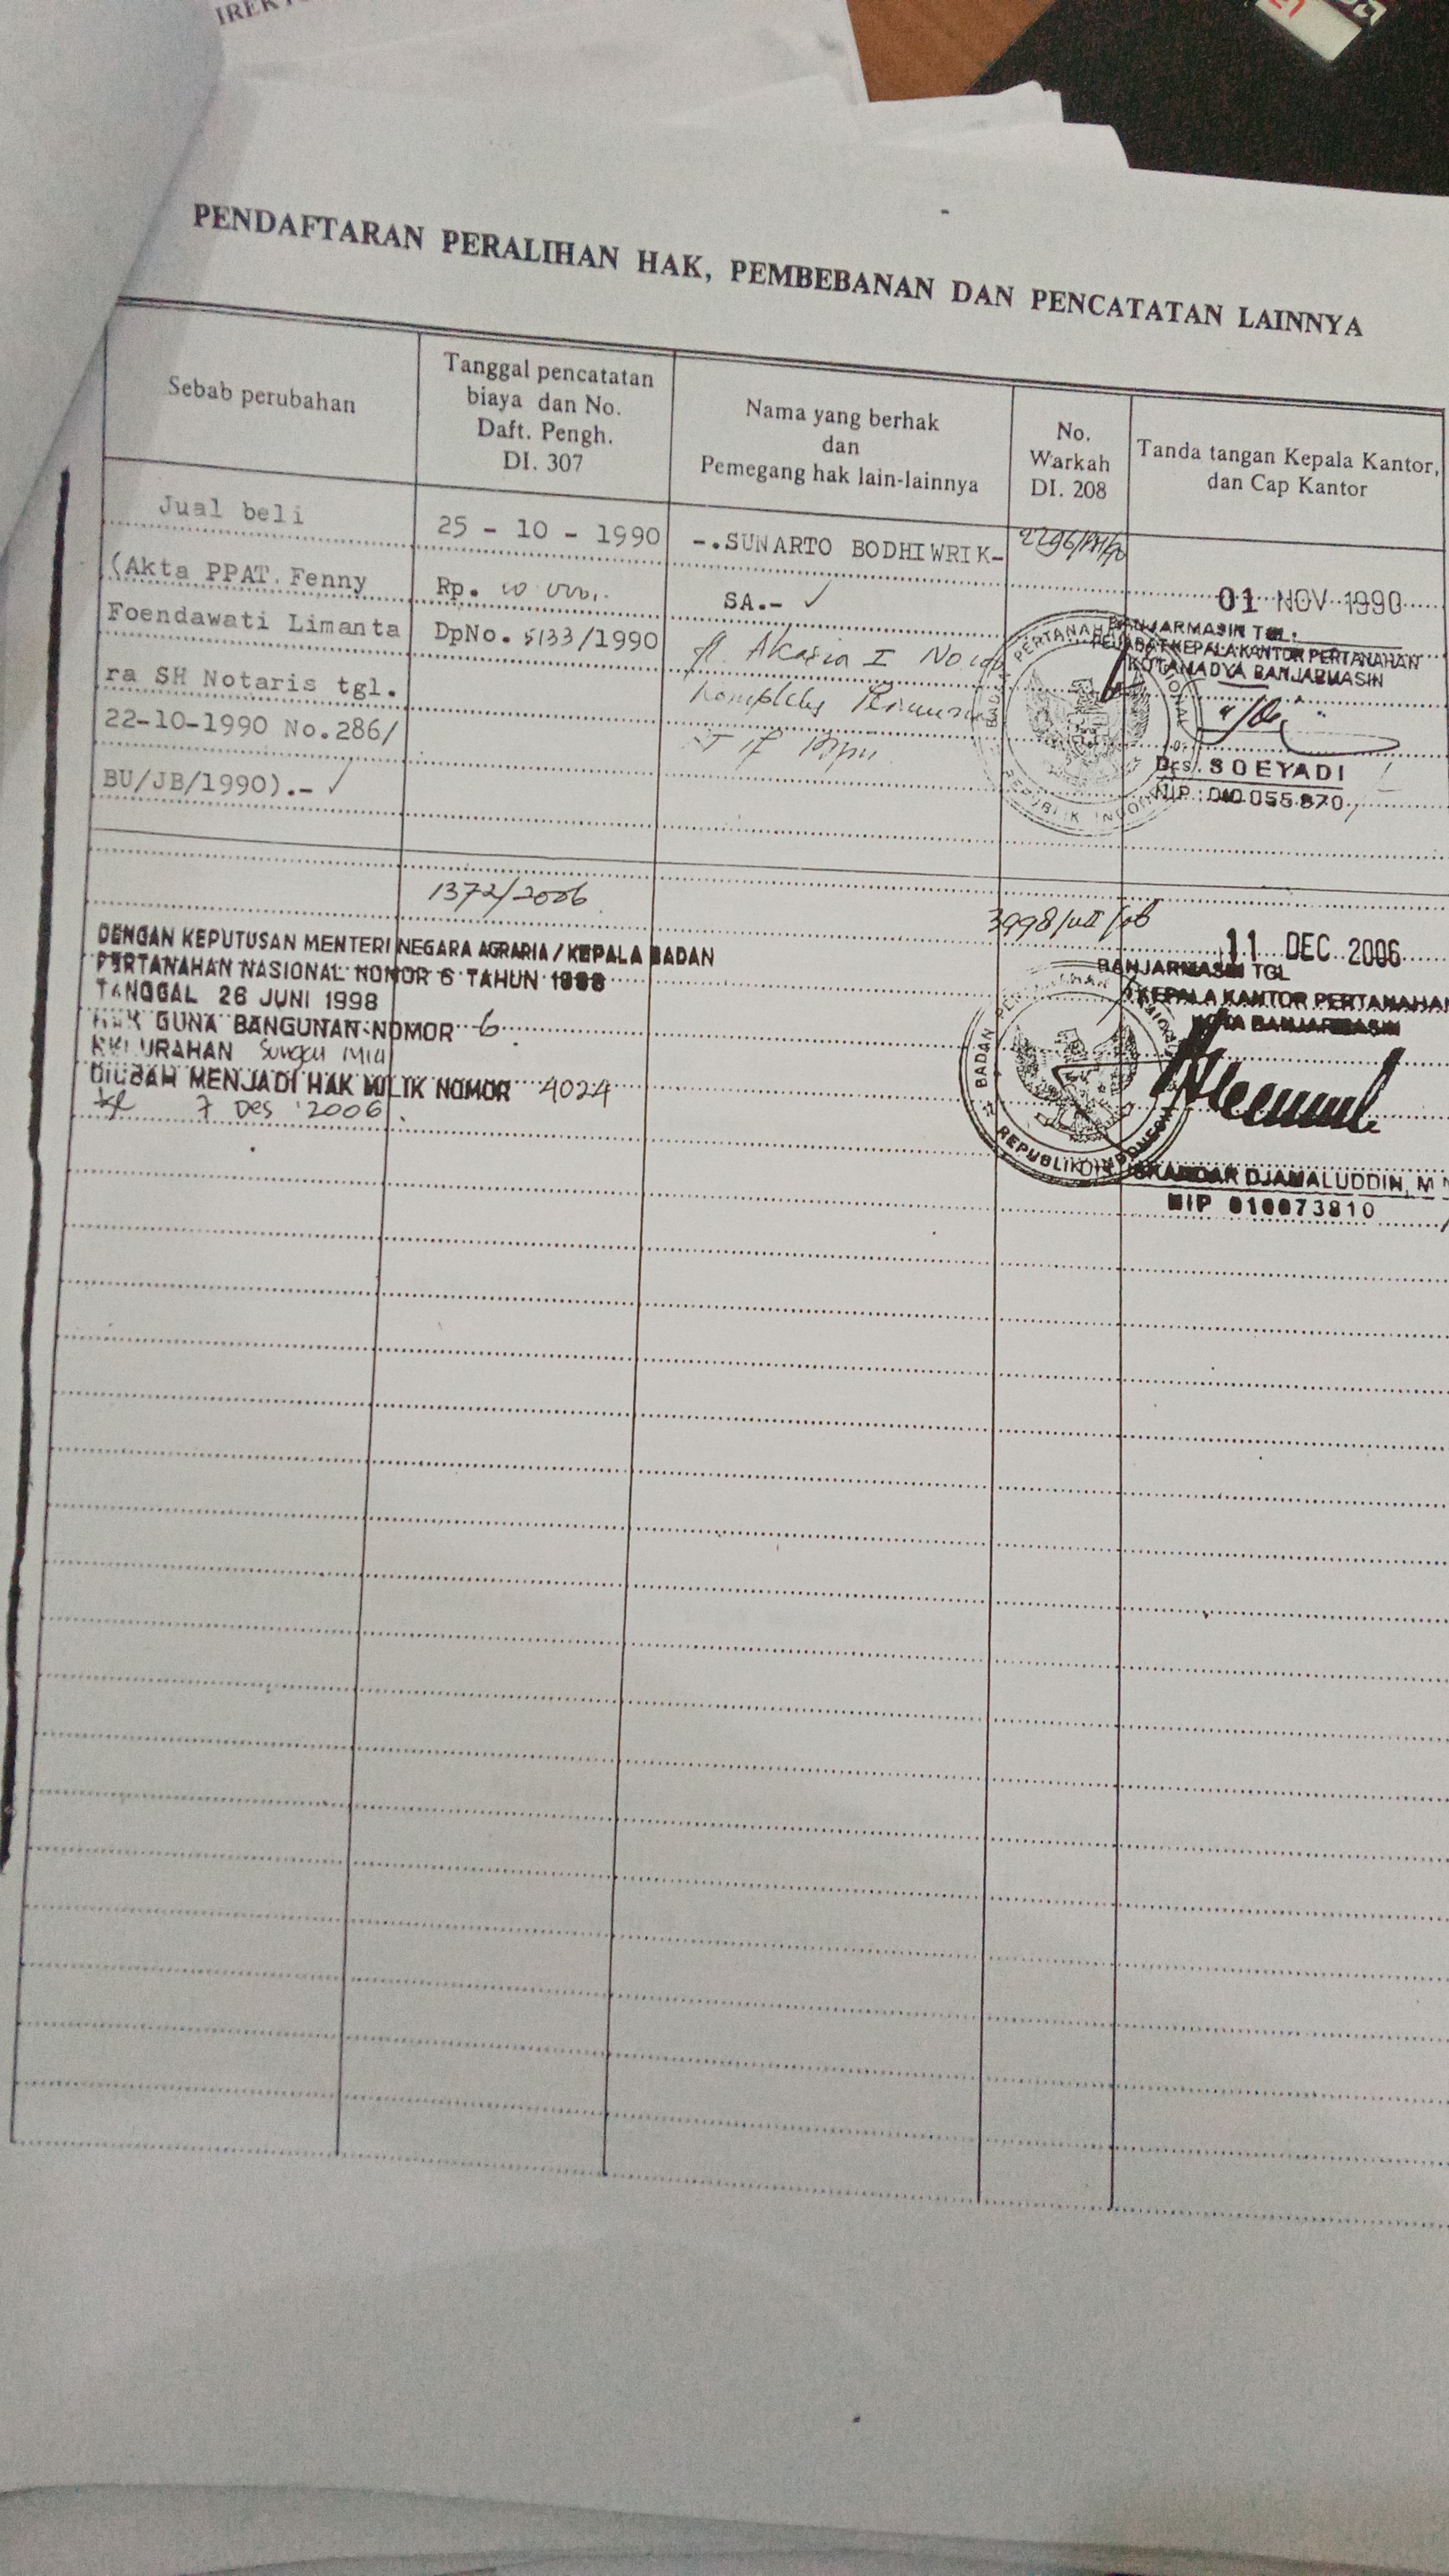 PENDAFTARAN PERALIHAN HAK, PEMBEBANAN DAN PENCATATAN LAINNYA
Sebab perubahan
Tanggal pencatatan
biaya dan No.
Daft. Pengh.
DI. 307
Nama yang berhak
dan
Pemegang hak lain-lainnya
No.
Warkah
DI. 208
Tanda tangan Kepala Kantor,
dan Cap Kantor
Jual beli
(Akta PPAT. Fenny
Foendawati Limanta
ra SH Notaris tgl.
22-10-1990 No.286/
BU/JB/1990).-
25 - 10 - 1990
Rp.
DpNo. 5133/1990
-.SUNARTO BODHIWRIK-
SA.-
Jl. Akasia I No.
Kompleks
01 NOV 1990
BANJARMASIN TGL.
PEJABAT KEPALA KANTOR PERTANAHAN
KOTAMADYA BANJARMASIN
Drs. SOEYADI
NIP : 010.055.870
REPUBLIK INDONESIA
1372/2006
DENGAN KEPUTUSAN MENTERI NEGARA AGRARIA / KEPALA BADAN
PERTANAHAN NASIONAL NOMOR 6 TAHUN 1998
TANGGAL 26 JUNI 1998
HAK GUNA BANGUNAN NOMOR 6
KELURAHAN Sungai Miai
DIUBAH MENJADI HAK MILIK NOMOR 4024
tgl 7 Des 2006
11 DEC 2006
BANJARMASIN TGL
KEPALA KANTOR PERTANAHAN
KOTA BANJARMASIN
BADAN PERTANAHAN NASIONAL
REPUBLIK INDONESIA
ISKANDAR DJAMALUDDIN, M
NIP 010073810